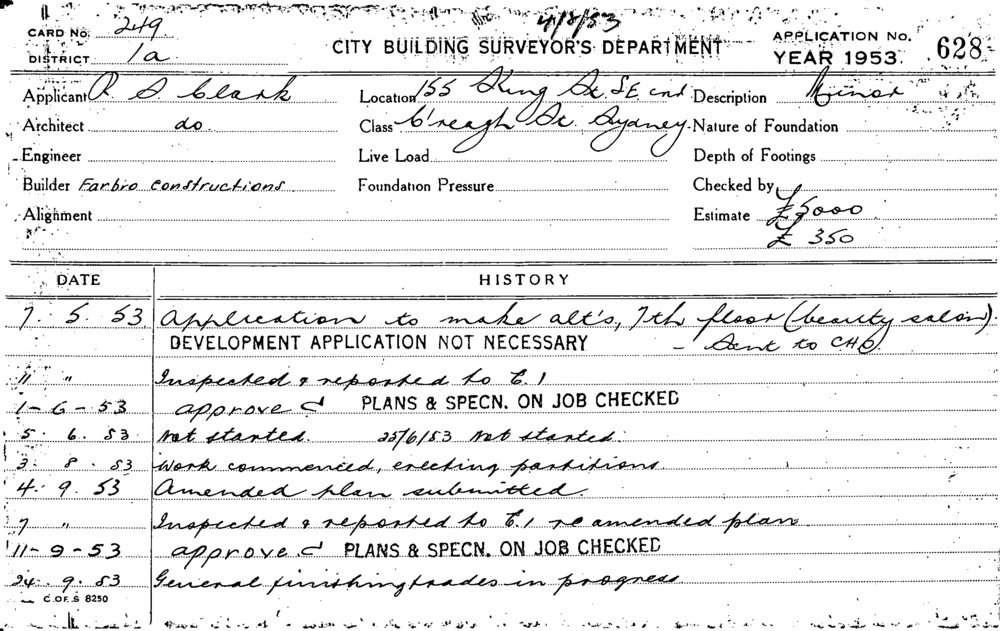 4/8/53
CARD No. 249
DISTRICT 1a
CITY BUILDING SURVEYOR'S DEPARTMENT
APPLICATION No. 628
YEAR 1953.
Applicant R. S. Clark
Location 155 King St. SE cnr
Description Minor
Architect do
Class C'reagh St. Sydney
Nature of Foundation
Engineer
Live Load
Depth of Footings
Builder Farbro constructions
Foundation Pressure
Checked by
Alignment
Estimate £5000
£ 350
DATE HISTORY
7. 5. 53 Application to make alt's, 7th floor (beauty salon).
DEVELOPMENT APPLICATION NOT NECESSARY - Sent to CHO
11 " Inspected & reported to E.1
1-6-53 approved PLANS & SPECN. ON JOB CHECKED
5. 6. 53 Not started. 25/6/53 Not started.
3. 8. 53 Work commenced, erecting partitions.
4. 9. 53 Amended plan submitted.
7 " Inspected & reported to E.1 re amended plan
11-9-53 approved PLANS & SPECN. ON JOB CHECKED
24. 9. 53 General finishing trades in progress
C. OF S 8250